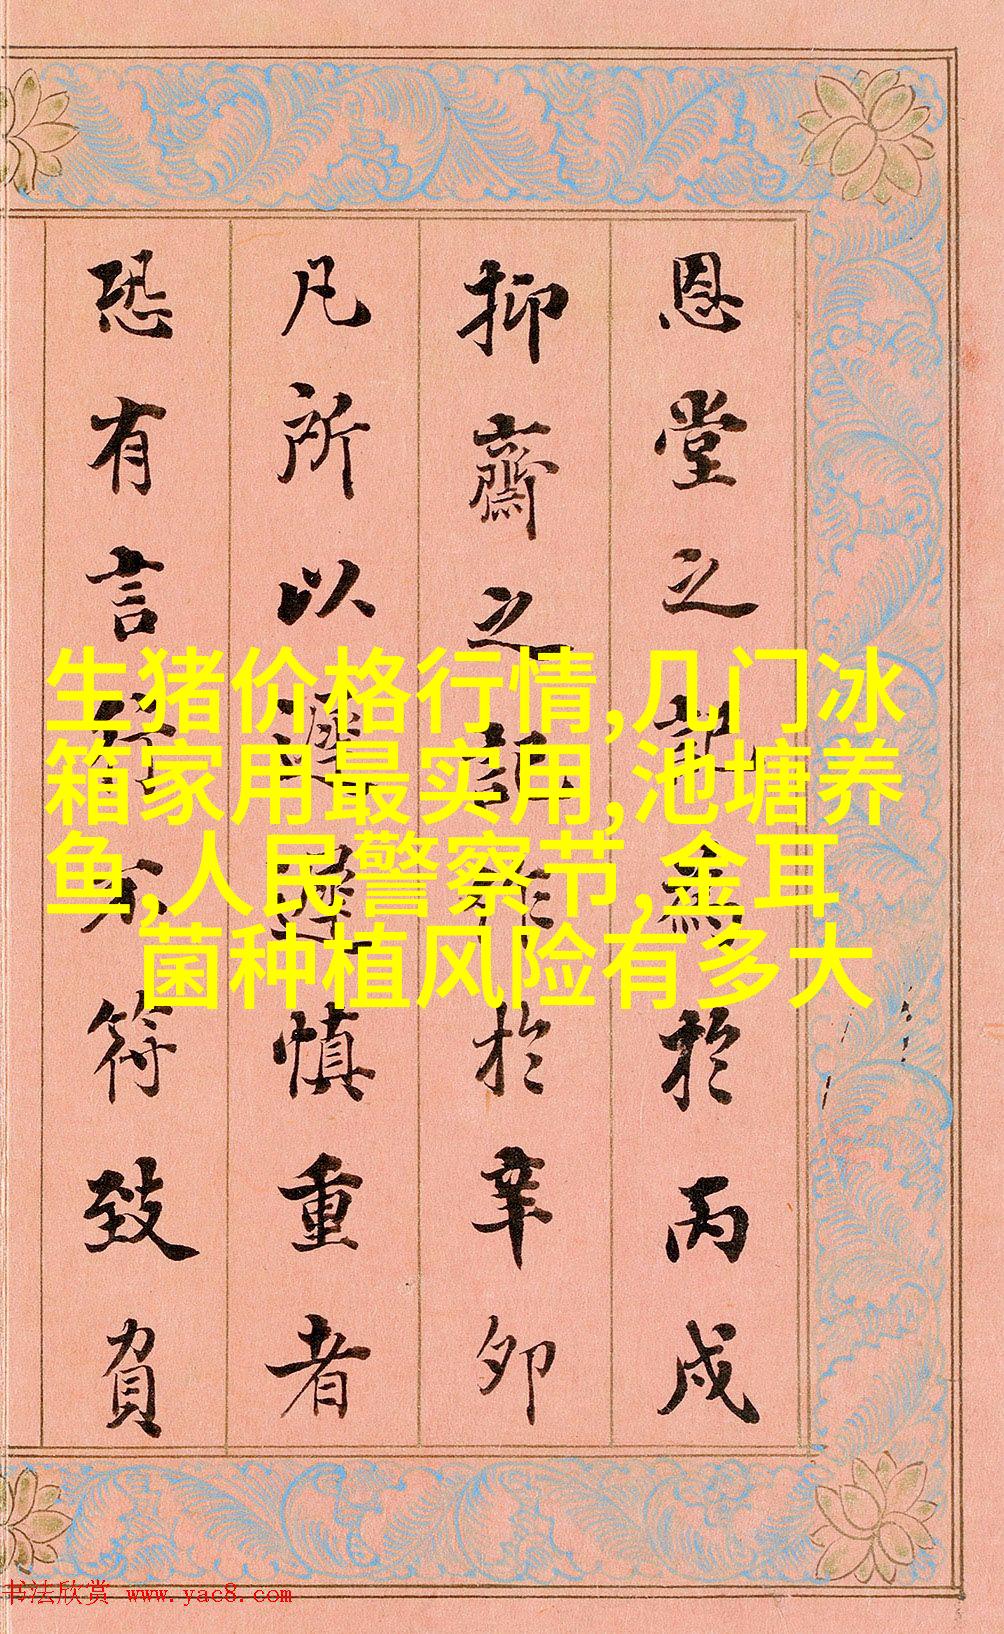 恩堂之記於丙戌
抑齋之記作於辛卯
凡所以遲遲慎重者
恐有言行不符致負
生猪价格行情,几门冰
箱家用最实用,池塘养
鱼,人民警察节,金耳
菌种植风险有多大
书法欣赏 www.yac8.com